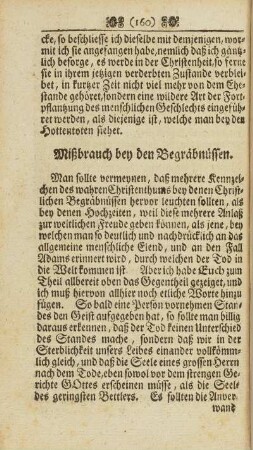 (160)
cke, so beschliesse ich dieselbe mit demjenigen, wor-
mit ich sie angefangen habe, nemlich daß ich gäntz-
lich besorge, es werde in der Christenheit, so ferne
sie in ihrem jetzigen verderbten Zustande verblei-
bet, in kurtzer Zeit nicht viel mehr von dem Ehe-
stande gehöret, sondern eine wildere Art der Fort-
pflantzung des menschlichen Geschlechts eingefüh-
ret werden, als diejenige ist, welche man bey den
Hottentoten siehet.
Mißbrauch bey den Begräbnüssen.
Man sollte vermeynen, daß mehrere Kennzei-
chen des wahren Christenthums bey denen Christ-
lichen Begräbnüssen hervor leuchten sollten, als
bey denen Hochzeiten, weil diese mehrere Anlaß
zur weltlichen Freude geben können, als jene, bey
welchen man so deutlich und nachdrücklich an das
allgemeine menschliche Elend, und an den Fall
Adams erinnert wird, durch welchen der Tod in
die Welt kommen ist Aber ich habe Euch zum
Theil allbereit oben das Gegentheil gezeiget, und
ich muß hiervon allhier noch etliche Worte hinzu
fügen. So bald eine Person vornehmen Stan-
des den Geist aufgegeben hat, so sollte man billig
daraus erkennen, daß der Tod keinen Unterschied
des Standes mache, sondern daß wir in der
Sterblichkeit unsers Leibes einander vollkömm-
lich gleich, und daß die Seele eines grossen Herrn
nach dem Tode, eben sowol vor dem strengen Ge-
richte GOttes erscheinen müsse, als die Seele
des geringsten Bettlers. Es sollten die Anver-
wand